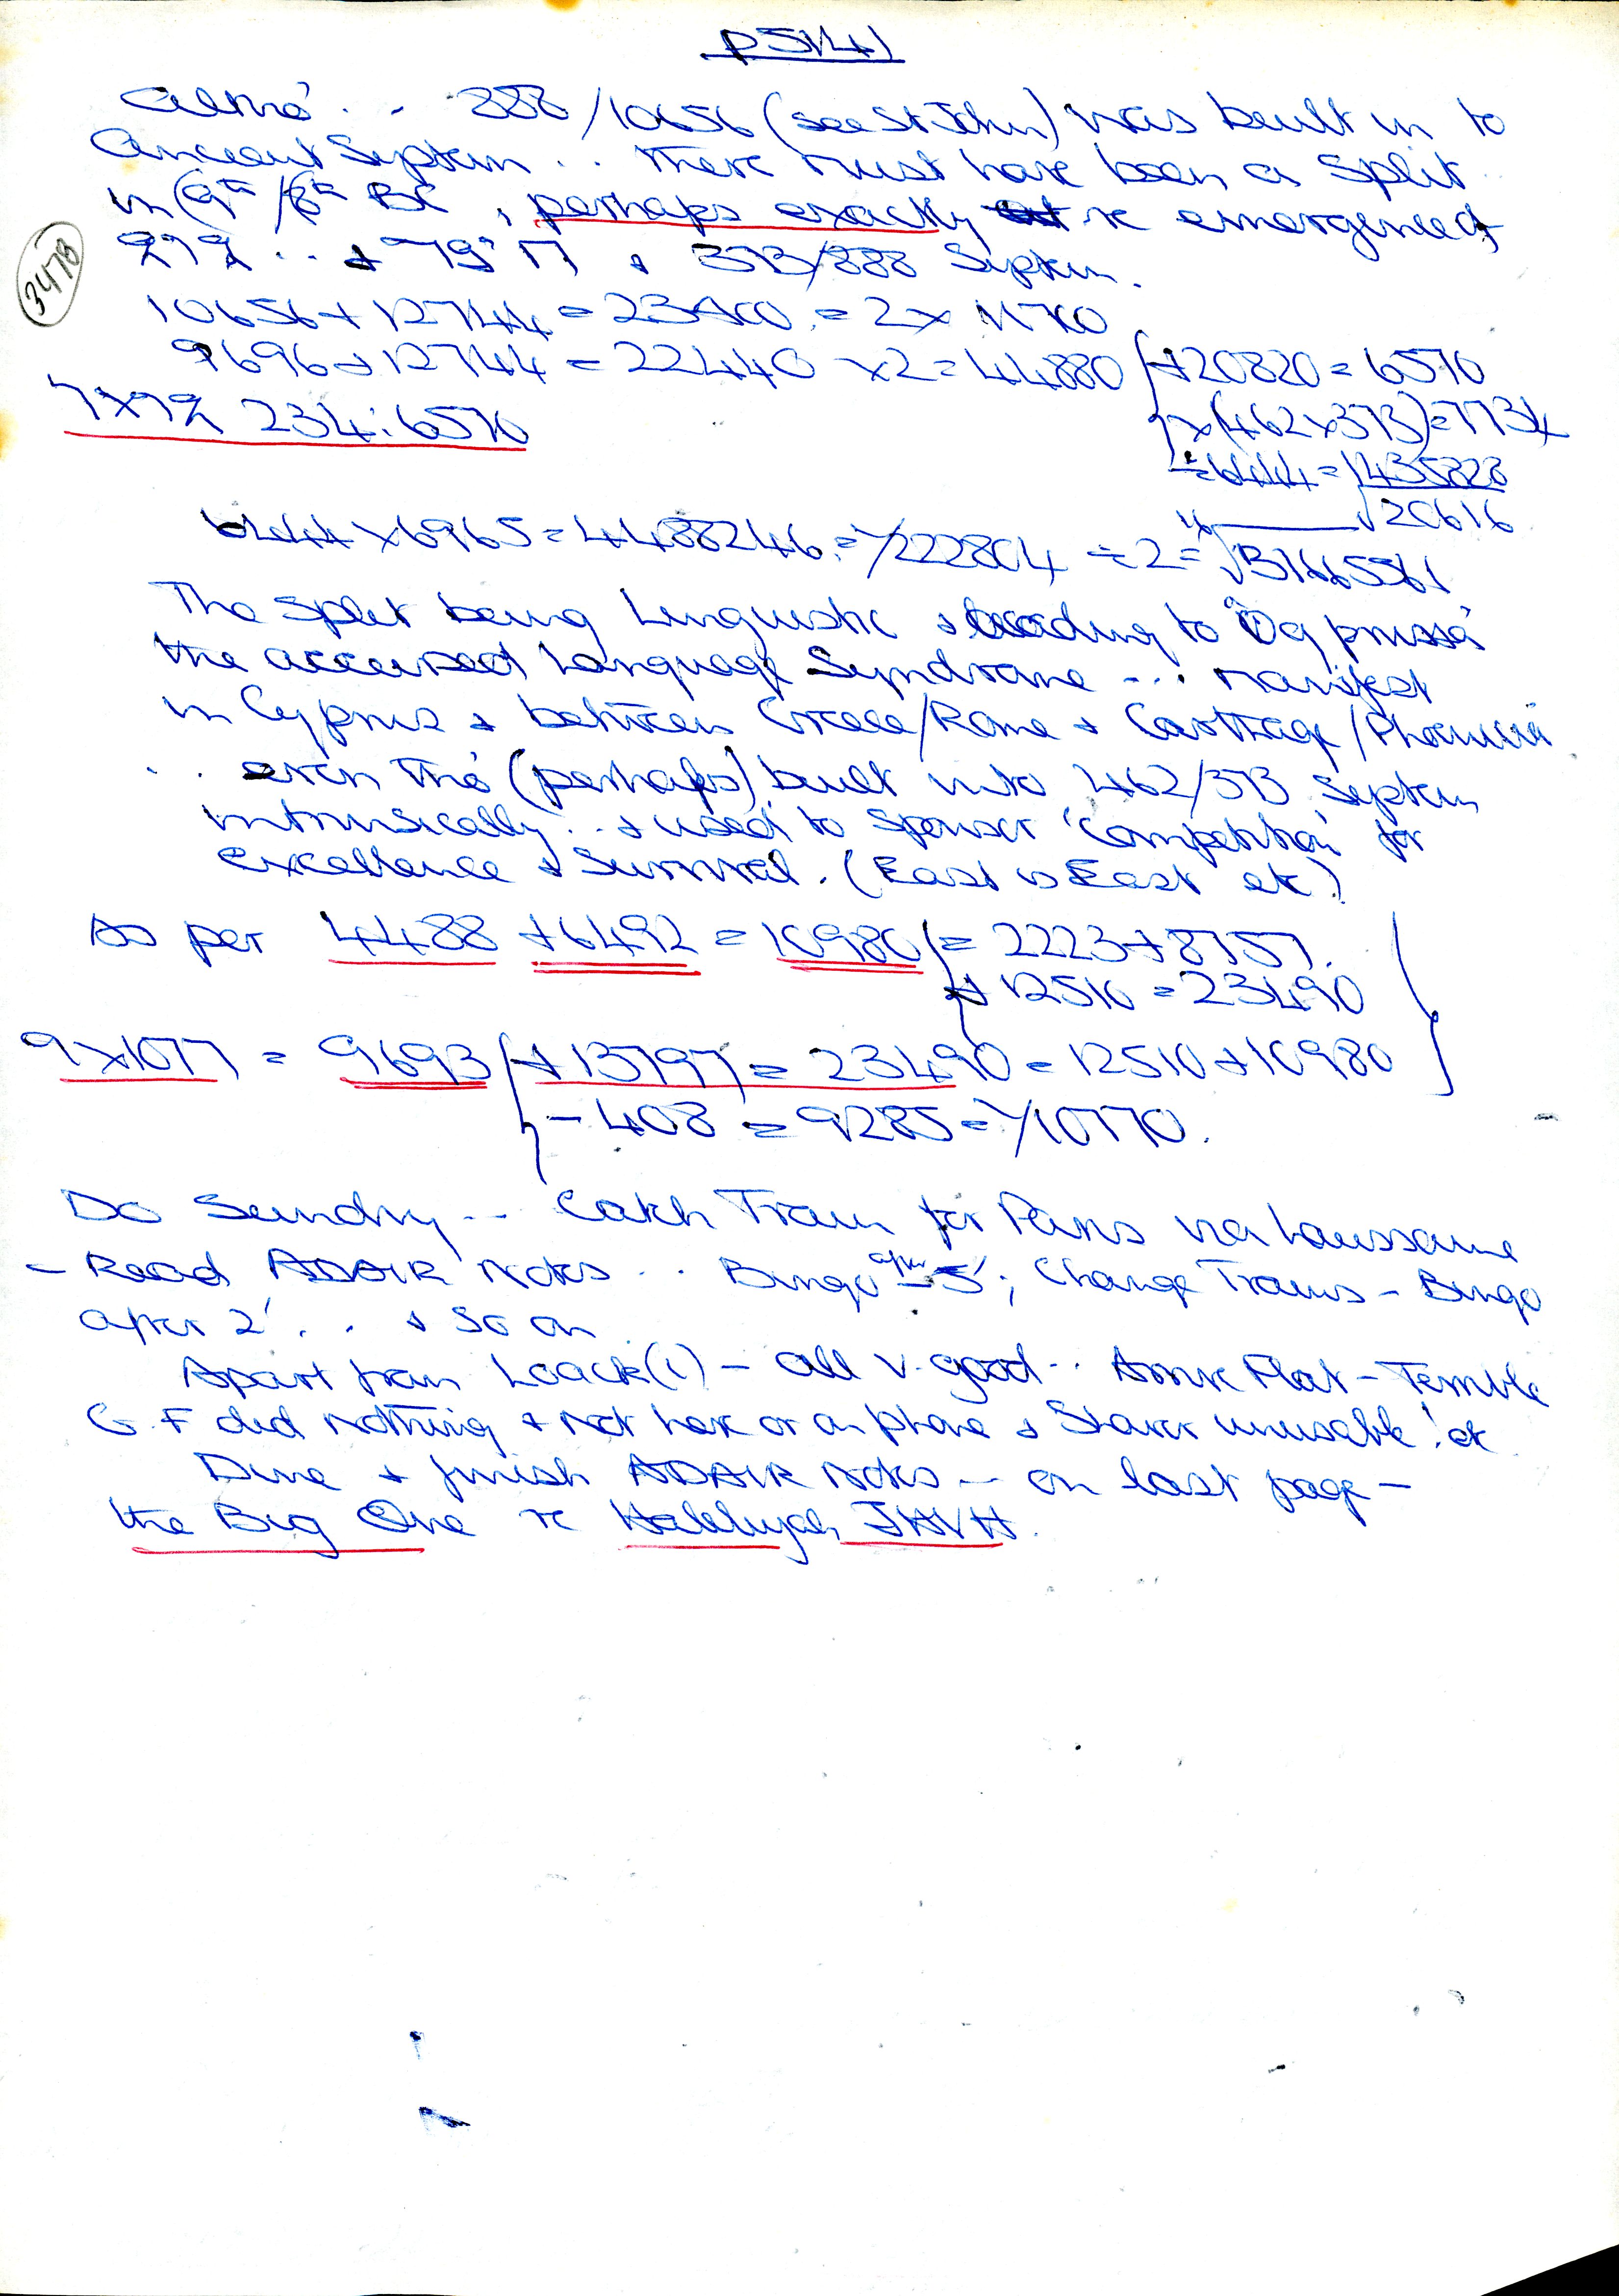 p51(4)
3478
888/10656 (see St John) was built in to
Ancient System .. there must have been a Split
in (9th/8th BC, perhaps exactly re emergence of
+ 79° 17 + 373/888 System.
10656 + 12744 = 23400 = 2 x 11700
9696 + 12744 = 22440 x2 = 44880 + 20820 = 6570
x(462x373) = 7734
7x72 234:6570
÷ 6444 = 1435828
√20616
6444 x 6965 = 4488246 = Y222804 ÷ 2 = √31665561
The Split being Linguistic & leading to
the accursed Language Syndrome ... manifest
in Cyprus & between Greece/Rome & Carthage/Phoenicia
.. even tho' (perhaps) built into 462/373 System
intrinsically .. & used to sponsor 'competition' for
excellence & Survival. (East is East etc)
As per 4488 + 6492 = 10980 = 2223 + 8757.
+ 12510 = 23490
9x1077 = 9693 + 13797 = 23490 = 12510 + 10980
- 408 = 9285 = Y10770.
Do Sundry .. Catch Train for Paris via Laussanne
- Read ADAIR Notes .. Bingo after 5'; Change Trains - Bingo
after 2' .. & So on
Apart from Loack(1) - all v. good .. Flat - Terrible
G.F did nothing & not here or on phone & Shower unusable! etc
Dine & finish ADAIR Notes - on last page -
the Big One re Hallelujah JHVH.